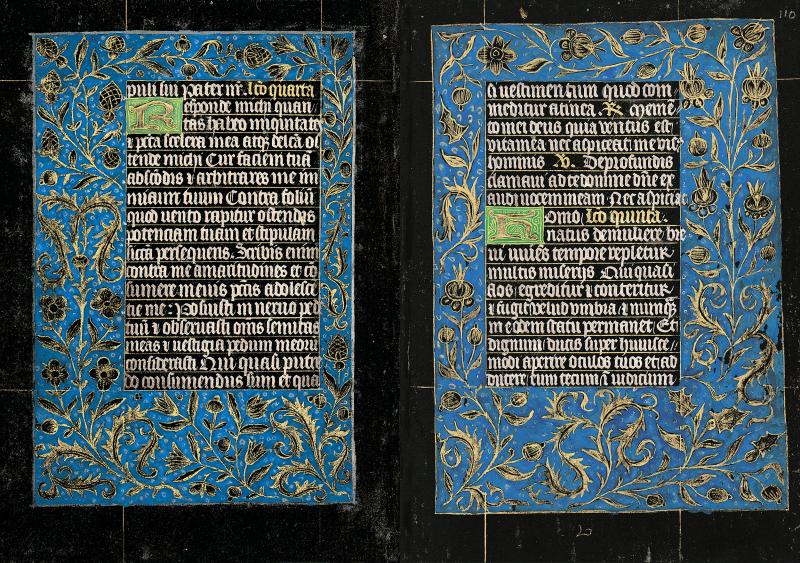 puli sui pater nr̄. Lcō quarta
Responde michi quan
tas habeo iniquitate
⁊ peccā scelera mea atqȝ delcā os
tende michi Cur faciem tuā
abscodis ⁊ arbitraris me ini
micum tuum Contra foliū
quod vento rapitur ostendis
potenciam tuam et stipulam
siccā persequeris. Scribis enim
contra me amaritudines et co
sumere me vis pctīs adolesce
tie me: Posuisti in neruo pe
tuū ⁊ obseruasti oms semitas
meas ⁊ uestigia pedum meorū
considerasti Qui quasi putre
do consumendus sum et quasi
110
a uestimentum quod com
meditur a tinea. R. Meme
to mei deus quia ventus est
vita mea nec aspiciat me vis
hominis V. De profundis
clamaui ad te domine dn̄e ex
audi uocem meam Nec aspiciat
Homo Lcō quinta.
natus de muliere bre
ui viues tempore repletur
multis miserijs Qui quasi
flos egreditur ⁊ conteritur
⁊ fugit velud vmbra ⁊ nunqȝ
in eodem statu permanet Et
dignum ducis super huiusce
modi aperire oculos tuos et ad
ducere eum tecum ī iudicium